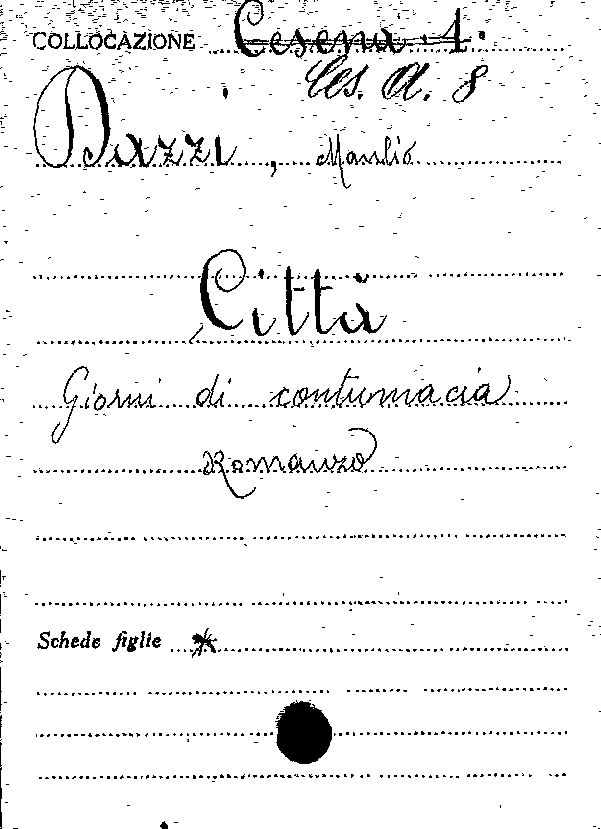 COLLOCAZIONE Cesena 4.
Ces. A. 8
Dazzi, Manlio
Città
Giorni di contumacia
Romanzo
Schede figlie *